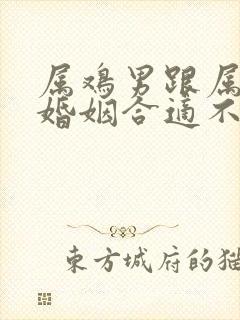 属鸡男跟属
婚姻合适不
东方城府的猫